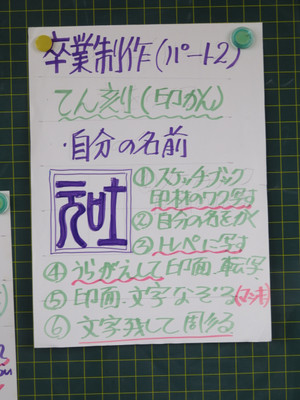 卒業制作(パート2)
てん刻(印かん)
・自分の名前
①スケッチブック
印材のワク写す
②自分の名をかく
③トレペに写す
④うらがえして印面、転写
⑤印面・文字なぞる(マジック)
⑥文字残して彫る